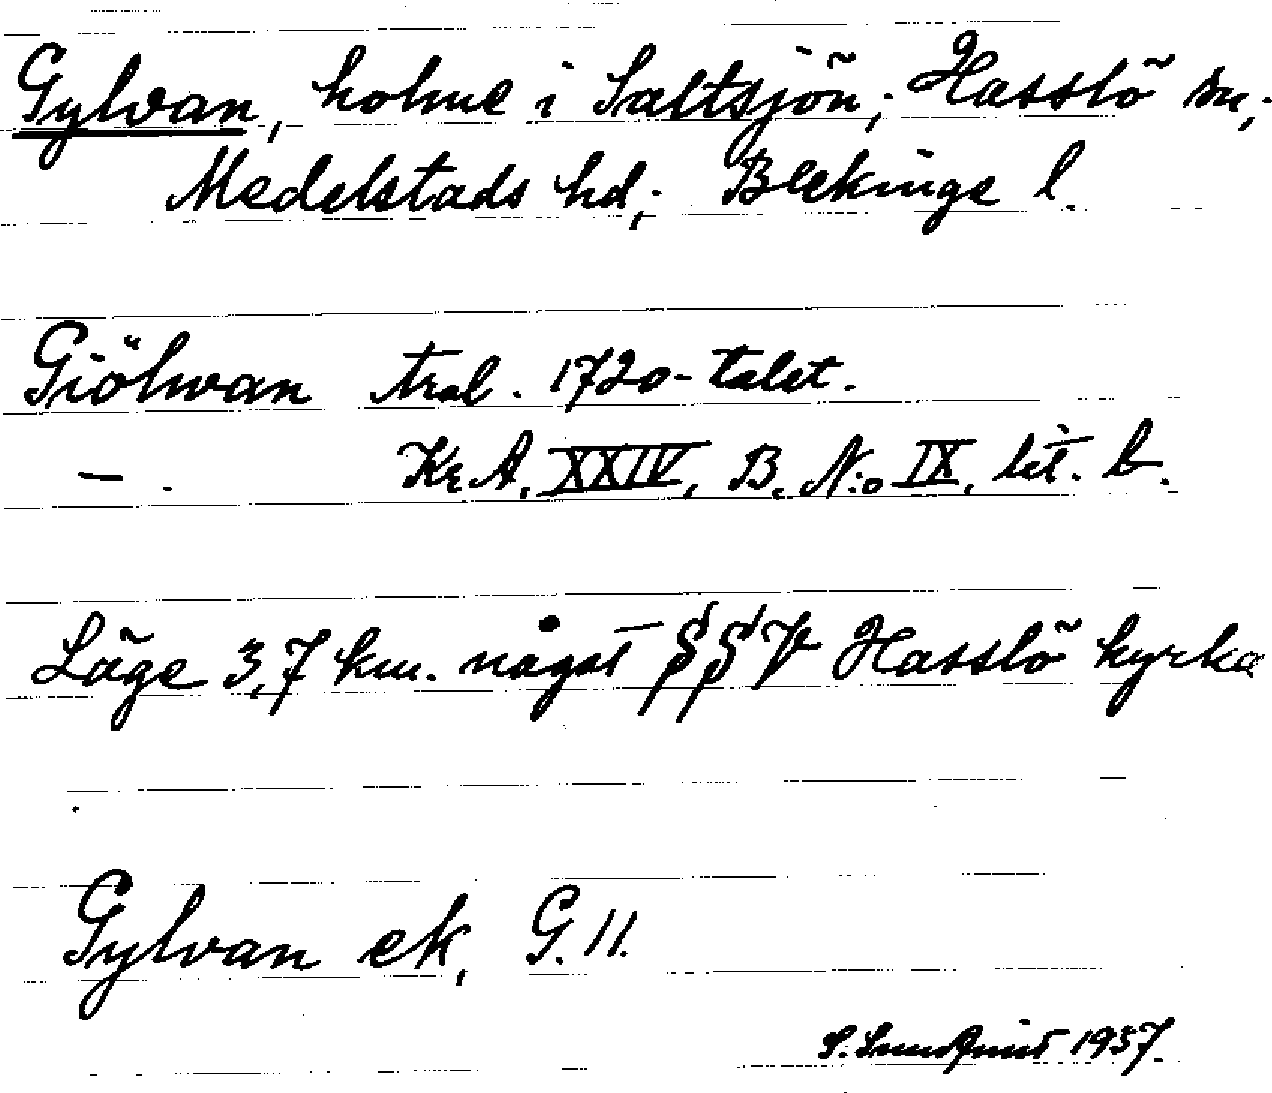 Gylvan, holme i Saltsjön; Hasslö sn;
Medelstads hd; Blekinge l.
Giölwan tral. 1720-talet.
— . Kr. A. XXIV, B. N:o IX, lit. b.
Läge 3,7 km. något SSV Hasslö kyrka
Gylvan ek, G. 11.
S. Sundquist 1937.